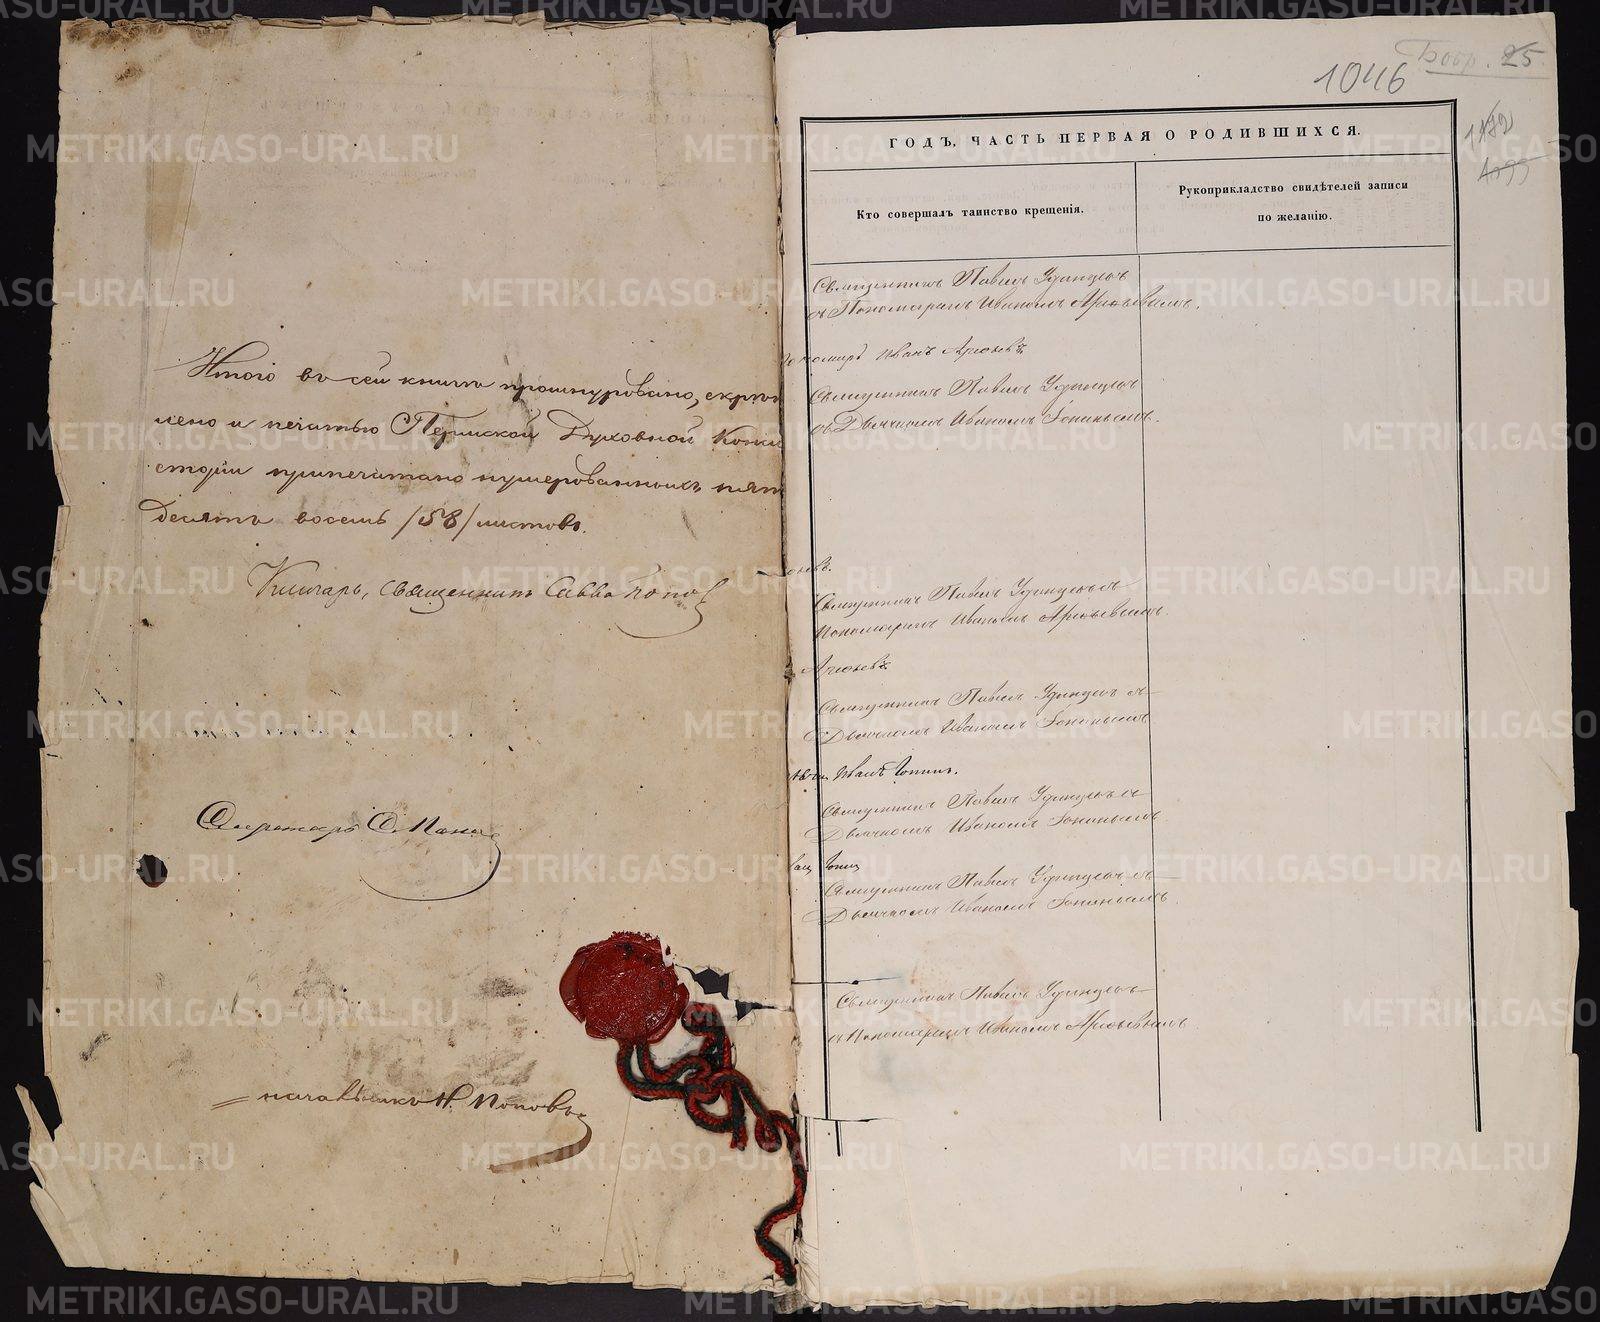 Итого въ сей книгѣ прошнуровано, скрѣп
лено и печатью Пермской Духовной Конси
сторіи припечатано нумерованныхъ пять
десятъ восемь /58/ листовъ.
Ключарь, Священникъ Савва Поповъ
Секретарь С. Попо
Н. Поповъ
Бобр. 25
1046
ГОДЪ, ЧАСТЬ ПЕРВАЯ О РОДИВШИХСЯ.
Кто совершалъ таинство крещенія.
Рукоприкладство свидѣтелей записи
по желанію.
Священникъ Павелъ Удинцовъ
съ Пономаремъ Иваномъ Арефьевымъ.
Пономарь Иванъ Арефьевъ
Священникъ Павелъ Удинцовъ
съ Дьячкомъ Иваномъ Гонинымъ.
Священникъ Павелъ Удинцовъ съ
Пономаремъ Иваномъ Арефьевымъ.
Арефьевъ
Священникъ Павелъ Удинцовъ съ
Дьячкомъ Иваномъ Гонинымъ
Иванъ Гонинъ.
Священникъ Павелъ Удинцовъ съ
Дьячкомъ Иваномъ Гонинымъ
Гонинъ
Священникъ Павелъ Удинцовъ съ
Дьячкомъ Иваномъ Гонинымъ.
Священникъ Павелъ Удинцовъ
съ Пономаремъ Иваномъ Арефьевымъ
METRIKI.GASO-URAL.RU